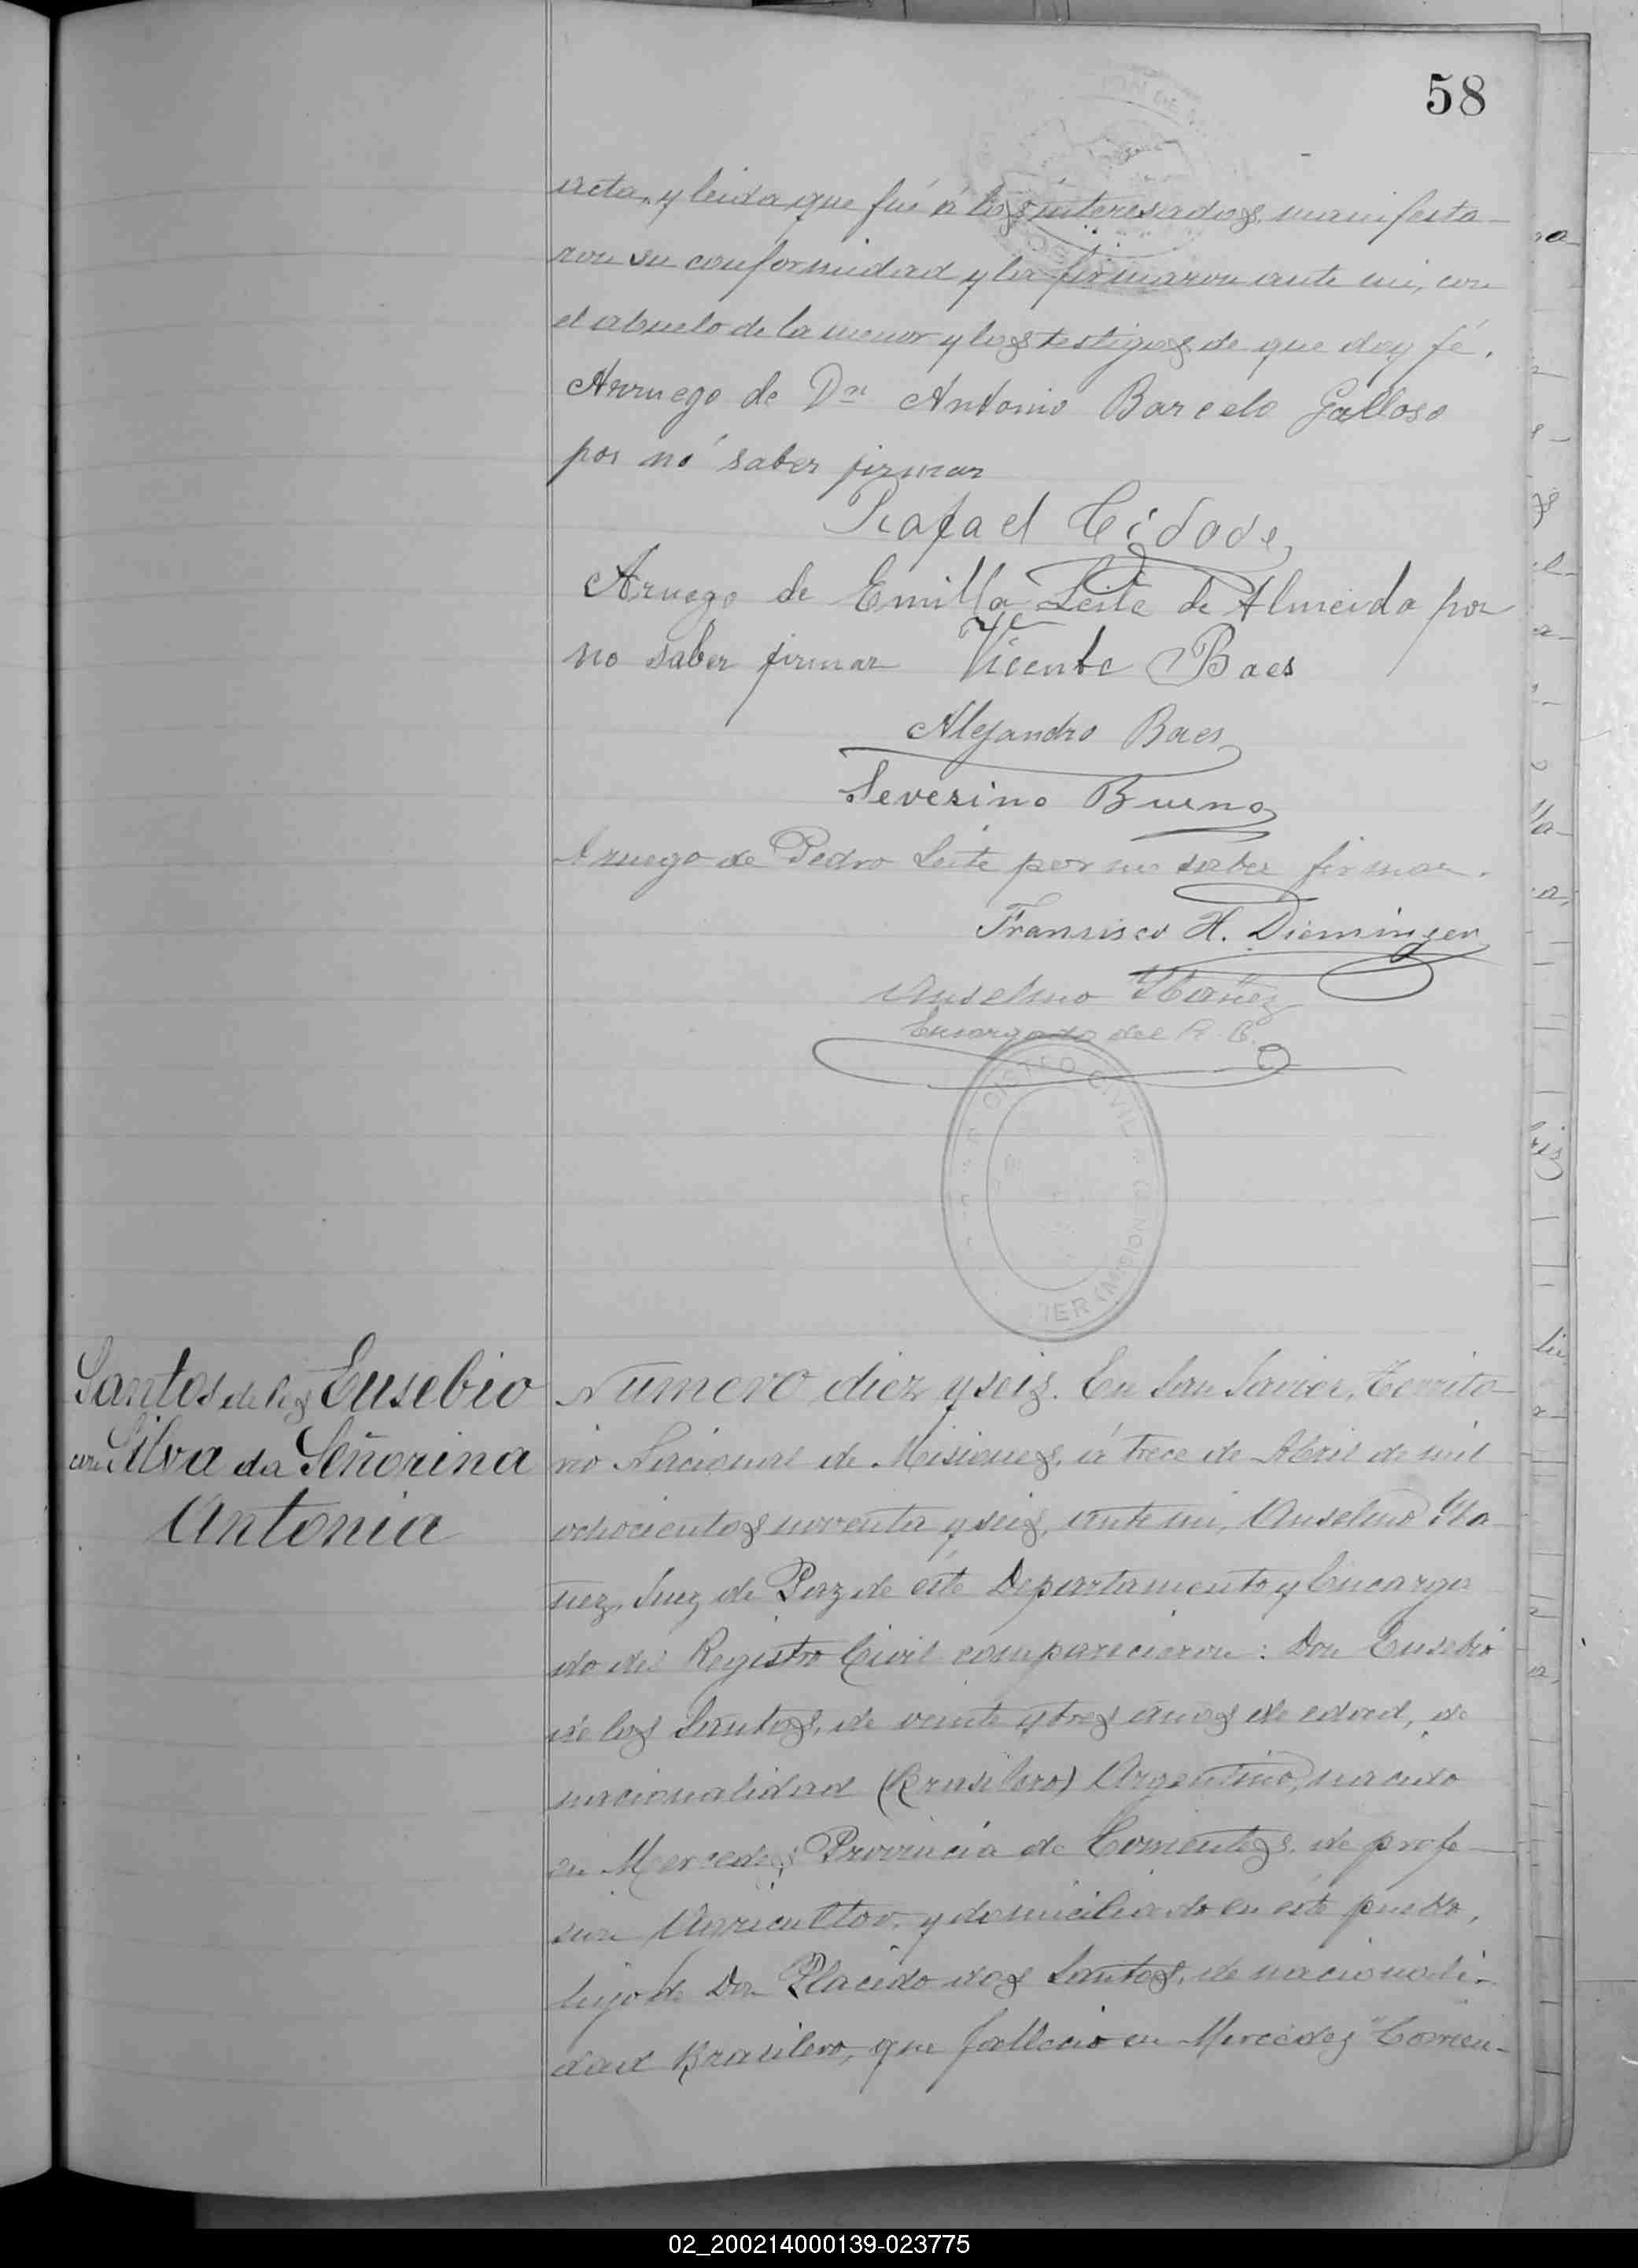 58
acta, y leida que fué á los interesados, manifesta-
ron su conformidad y la firmaron ante mi, con
el abuelo de la menor y los testigos de que doy fé.
Arruego de Dn Antonio Barcelo Galloso
por nó saber firmar
Rafael Cidade
Aruego de Emilla Leite de Almeida por
no saber firmar Vicente Baes
Alejandro Baes
Severino Bueno
Aruego de Pedro Leite por no saber firmar.
Fransisco H. Dieminger
Anselmo Ybañez
Encargado del R. C.
GISTRO CIVIL
IER (MISIONES)
Santos de los Eusebio
con Silva da Señorina
Antonia
Numero diez y seis. En San Javier, Territo-
rio Nacional de Misiones, á trece de Abril de mil
ochocientos noventa y seis, ante mi, Anselmo Yba-
ñez, Juez de Paz de éste Departamento y Encarga
do del Registro Civil comparecieron: Don Eusebio
de los Santos, de veinte y tres años de edad, de
nacionalidad (Brasilero) Argentino, nacido
en Mercedes Provincia de Corrientes, de profe-
sion Agricultor, y domiciliado en éste pueblo,
hijo de Don Placido dos Santos, de nacionali-
dad Brasilero, que fallecio en Mercedes "Corrien-
02_200214000139-023775